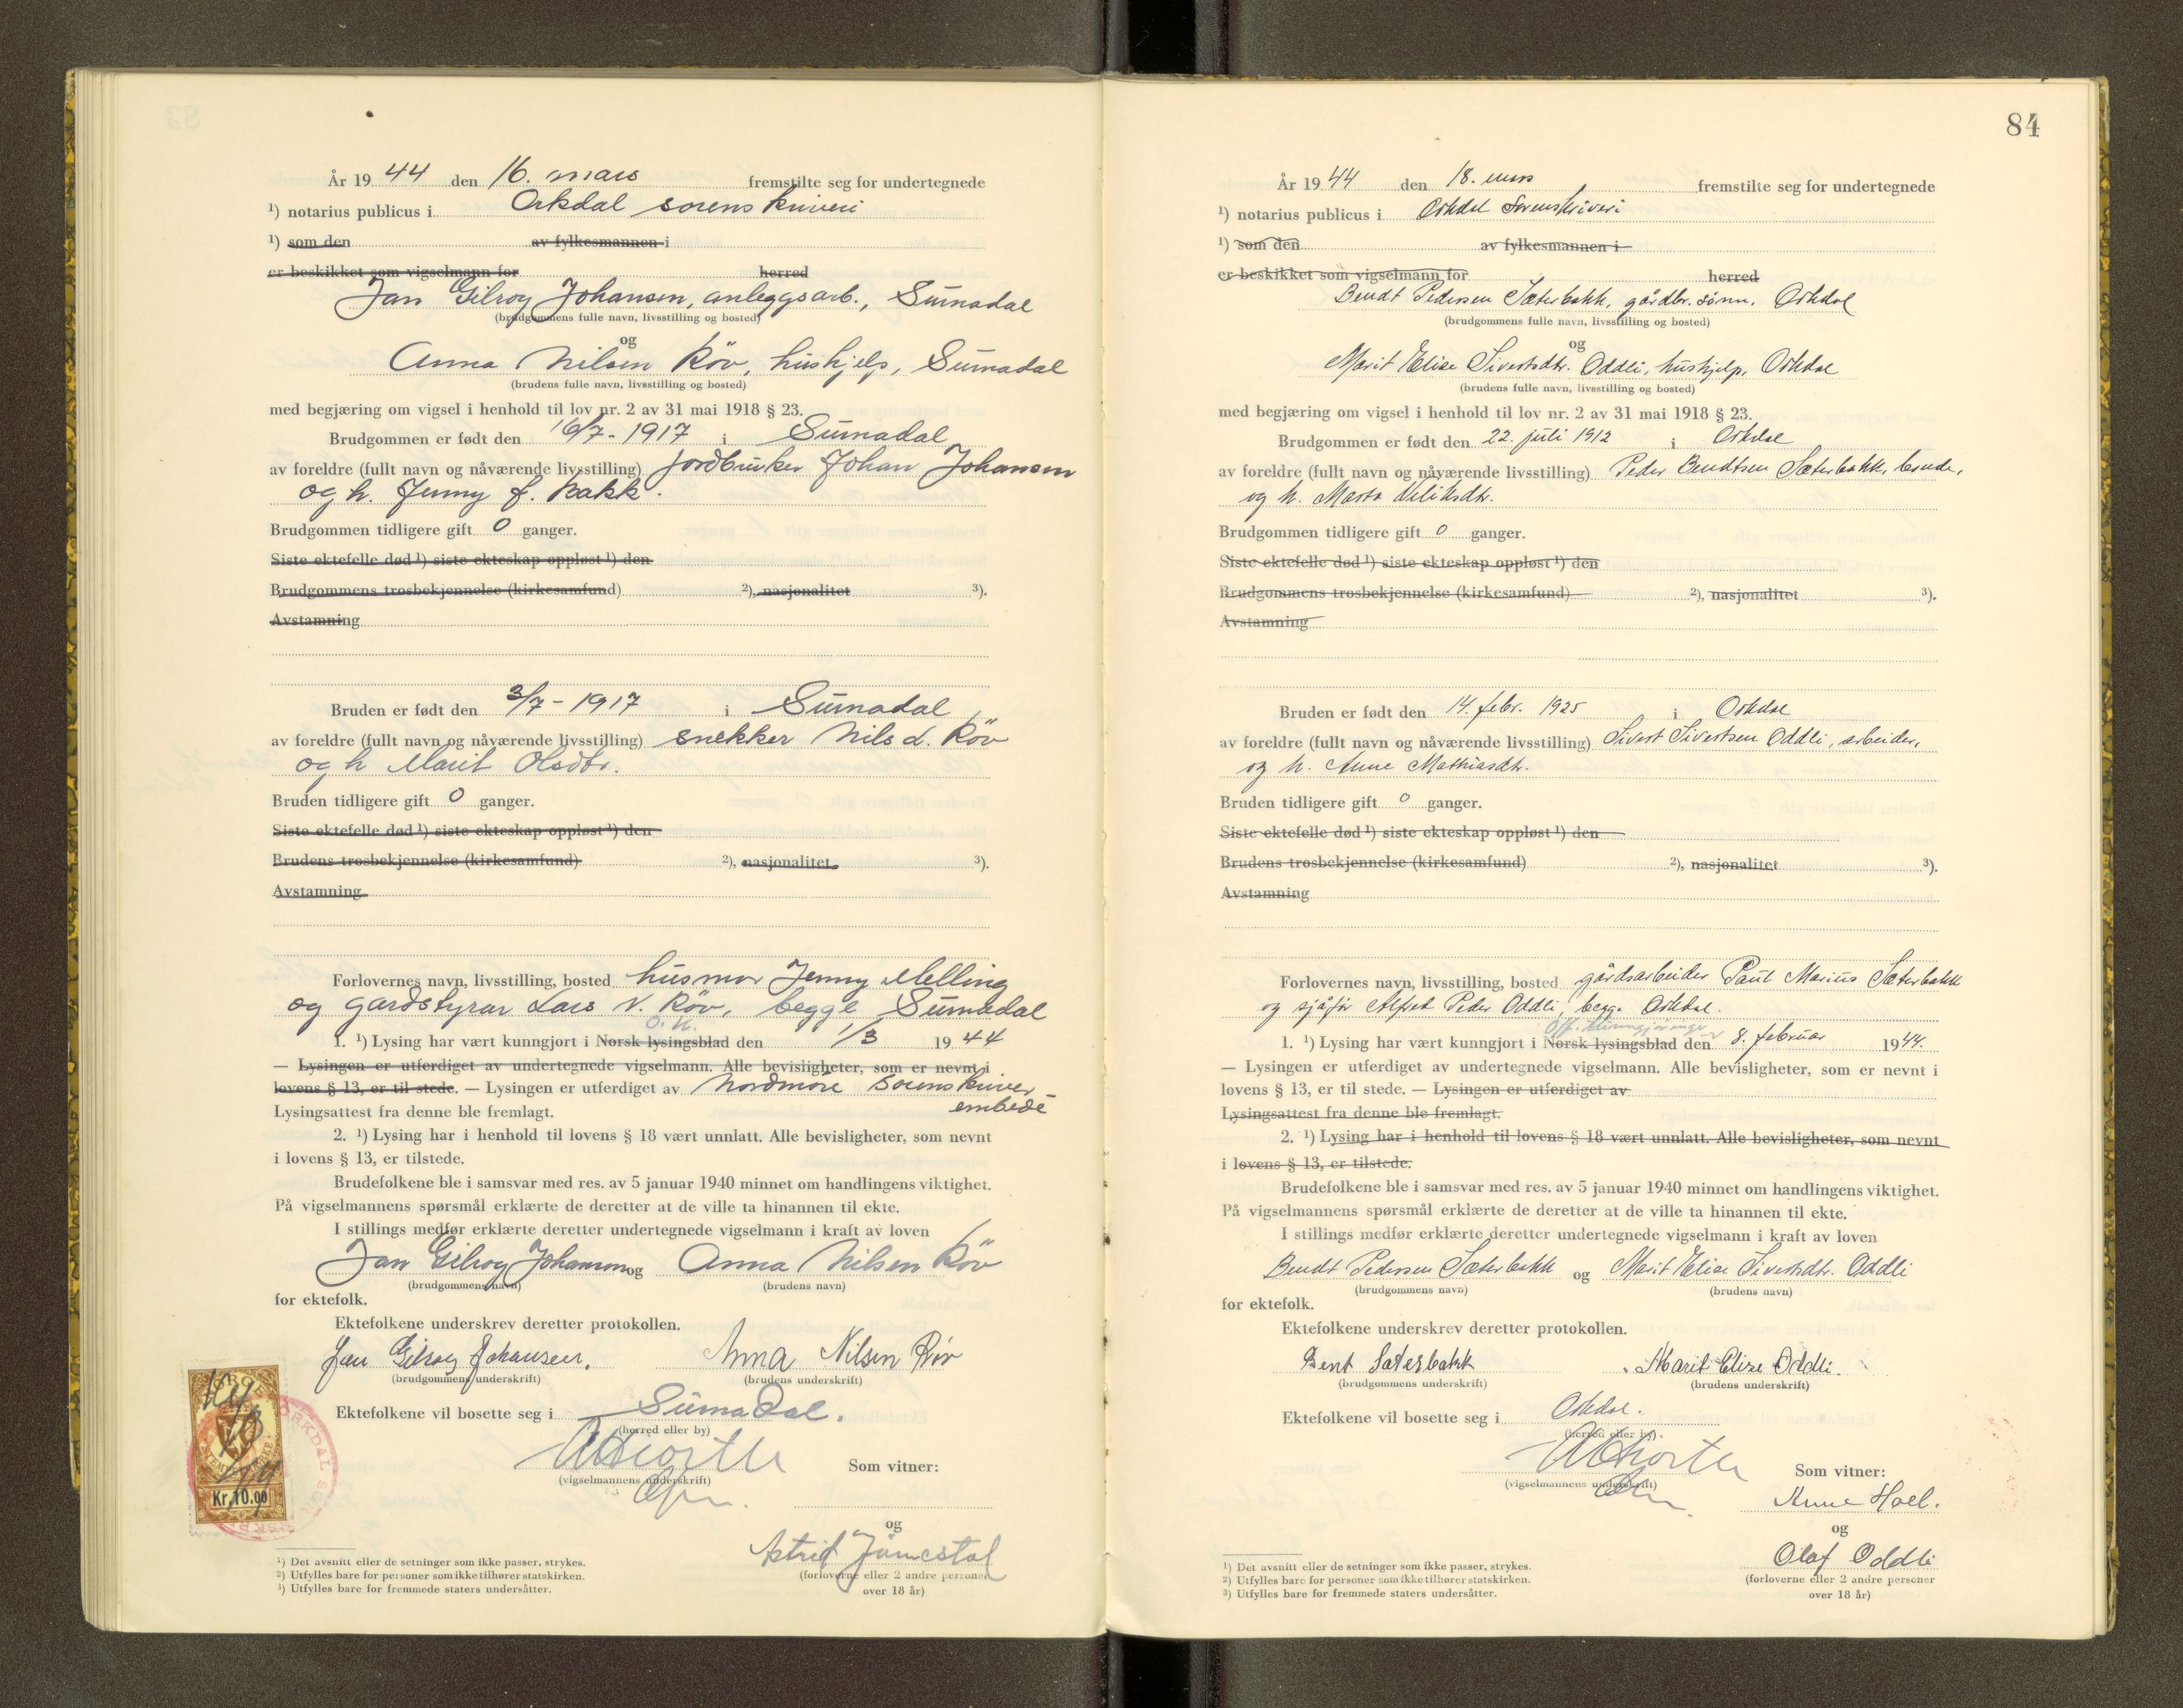 År 19 44 den 16. mars fremstilte seg for undertegnede
¹) notarius publicus i Orkdal sorenskriveri
¹) som den av fylkesmannen i
er beskikket som vigselmann for herred
Jan Gilroy Johansen, anleggsarb., Surnadal
(brudgommens fulle navn, livsstilling og bosted)
og
Anna Nilsen Röv, hushjelp, Surnadal
(brudens fulle navn, livsstilling og bosted)
med begjæring om vigsel i henhold til lov nr. 2 av 31 mai 1918 § 23.
Brudgommen er født den 16/7 - 1917 i Surnadal
av foreldre (fullt navn og nåværende livsstilling) jordbruker Johan Johansen
og h. Jenny f. Bakk.
Brudgommen tidligere gift 0 ganger.
Siste ektefelle død ¹) siste ekteskap oppløst ¹) den
Brudgommens trosbekjennelse (kirkesamfund) ²), nasjonalitet ³).
Avstamning
Bruden er født den 3/7 - 1917 i Surnadal
av foreldre (fullt navn og nåværende livsstilling) snekker Nils L. Röv
og h Marit Olsdtr.
Bruden tidligere gift 0 ganger.
Siste ektefelle død ¹) siste ekteskap oppløst ¹) den
Brudens trosbekjennelse (kirkesamfund) ²), nasjonalitet ³).
Avstamning
Forlovernes navn, livsstilling, bosted husmor Jenny Melling
og gardstyrar Lars N. Röv, begge Surnadal
O. K.
1. ¹) Lysing har vært kunngjort i Norsk lysingsblad den 1/3 19 44
— Lysingen er utferdiget av undertegnede vigselmann. Alle bevisligheter, som er nevnt i
lovens § 13, er til stede. — Lysingen er utferdiget av Nordmöre sorenskriver
embede
Lysingsattest fra denne ble fremlagt.
2. ¹) Lysing har i henhold til lovens § 18 vært unnlatt. Alle bevisligheter, som nevnt
i lovens § 13, er tilstede.
Brudefolkene ble i samsvar med res. av 5 januar 1940 minnet om handlingens viktighet.
På vigselmannens spørsmål erklærte de deretter at de ville ta hinannen til ekte.
I stillings medfør erklærte deretter undertegnede vigselmann i kraft av loven
Jan Gilroy Johansen og Anna Nilsen Röv
(brudgommens navn) (brudens navn)
for ektefolk.
Ektefolkene underskrev deretter protokollen.
Jan Gilroy Johansen. Anna Nilsen Röv
(brudgommens underskrift) (brudens underskrift)
Ektefolkene vil bosette seg i Surnadal.
(herred eller by)
Som vitner:
(vigselmannens underskrift)
NORGE
Kr. 10.00
ORKDAL
og
Astrid
(forloverne eller 2 andre personer
over 18 år)
¹) Det avsnitt eller de setninger som ikke passer, strykes.
²) Utfylles bare for personer som ikke tilhører statskirken.
³) Utfylles bare for fremmede staters undersåtter.
84
År 19 44 den 18. mars fremstilte seg for undertegnede
¹) notarius publicus i Orkdal Sorenskriveri
¹) som den av fylkesmannen i
er beskikket som vigselmann for herred
Bendt Pedersen Sæterbakk, gårdbr. sönn, Orkdal
(brudgommens fulle navn, livsstilling og bosted)
og
Marit Elise Sivertsdtr. Oddli, hushjelp, Orkdal
(brudens fulle navn, livsstilling og bosted)
med begjæring om vigsel i henhold til lov nr. 2 av 31 mai 1918 § 23.
Brudgommen er født den 22. juli 1912 i Orkdal
av foreldre (fullt navn og nåværende livsstilling) Peder Bendtsen Sæterbakk, bonde,
og h. Marta
Brudgommen tidligere gift 0 ganger.
Siste ektefelle død ¹) siste ekteskap oppløst ¹) den
Brudgommens trosbekjennelse (kirkesamfund) ²), nasjonalitet ³).
Avstamning
Bruden er født den 14. febr. 1925 i Orkdal
av foreldre (fullt navn og nåværende livsstilling) Sivert Sivertsen Oddli, arbeider,
og h. Anne Mathiasdtr.
Bruden tidligere gift 0 ganger.
Siste ektefelle død ¹) siste ekteskap oppløst ¹) den
Brudens trosbekjennelse (kirkesamfund) ²), nasjonalitet ³).
Avstamning
Forlovernes navn, livsstilling, bosted gårdsarbeider Paul Marius Sæterbakk
og sjåfør Alfred Peder Oddli, begge Orkdal.
Off. kunngjøringer
1. ¹) Lysing har vært kunngjort i Norsk lysingsblad den 8. februar 1944.
— Lysingen er utferdiget av undertegnede vigselmann. Alle bevisligheter, som er nevnt i
lovens § 13, er til stede. — Lysingen er utferdiget av
Lysingsattest fra denne ble fremlagt.
2. ¹) Lysing har i henhold til lovens § 18 vært unnlatt. Alle bevisligheter, som nevnt
i lovens § 13, er tilstede.
Brudefolkene ble i samsvar med res. av 5 januar 1940 minnet om handlingens viktighet.
På vigselmannens spørsmål erklærte de deretter at de ville ta hinannen til ekte.
I stillings medfør erklærte deretter undertegnede vigselmann i kraft av loven
Bendt Pedersen Sæterbakk og Marit Elise Sivertsdtr. Oddli
(brudgommens navn) (brudens navn)
for ektefolk.
Ektefolkene underskrev deretter protokollen.
Bent Sæterbakk Marit Elise Oddli.
(brudgommens underskrift) (brudens underskrift)
Ektefolkene vil bosette seg i Orkdal.
(herred eller by)
Som vitner:
(vigselmannens underskrift)
Anne Hoel.
og
Olaf Oddli
(forloverne eller 2 andre personer
over 18 år)
¹) Det avsnitt eller de setninger som ikke passer, strykes.
²) Utfylles bare for personer som ikke tilhører statskirken.
³) Utfylles bare for fremmede staters undersåtter.